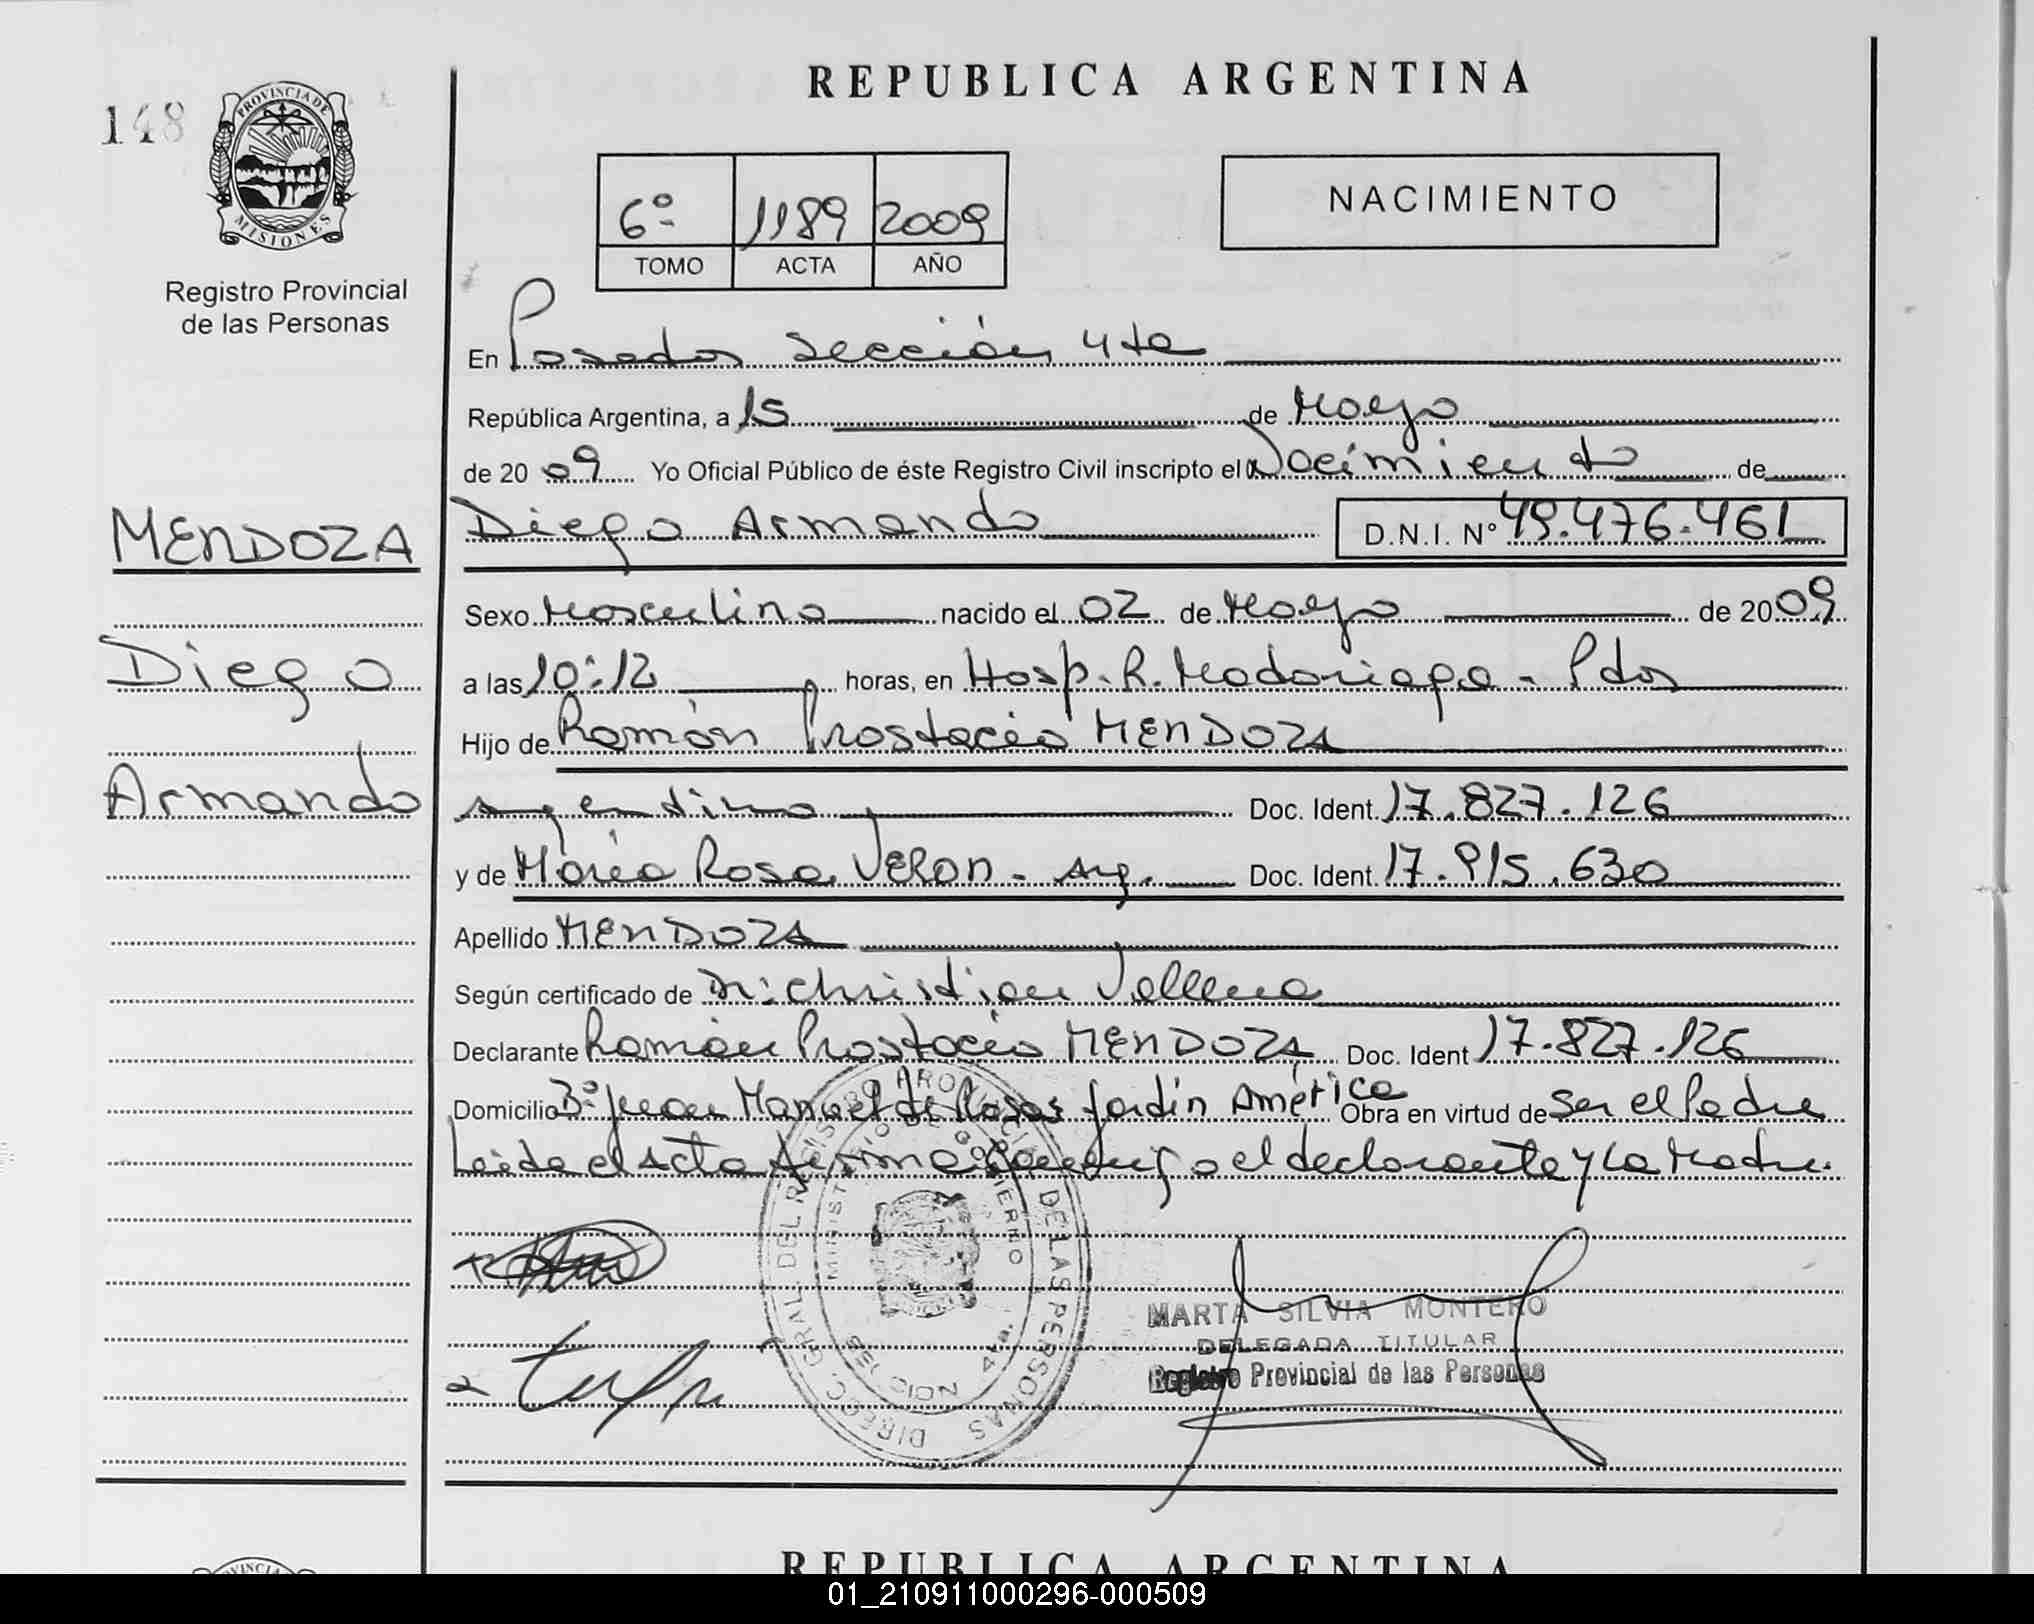 REPUBLICA ARGENTINA
148
PROVINCIA DE
MISIONES
Registro Provincial
de las Personas
6º 1189 2009
TOMO ACTA AÑO
NACIMIENTO
En Posadas Sección 4ta
República Argentina, a 15 de Mayo
de 2009 Yo Oficial Público de éste Registro Civil inscripto el Nacimiento de
MENDOZA
Diego
Armando
Diego Armando D.N.I. Nº 49.476.461
Sexo Masculino nacido el 02 de Mayo de 2009
a las 10:12 horas, en Hosp. R. Madariaga - Pdas
Hijo de Ramón Prostacio MENDOZA
argentino Doc. Ident. 17.827.126
y de María Rosa VERON - arg. Doc. Ident. 17.915.630
Apellido MENDOZA
Según certificado de Dr. Christian
Declarante Ramón Prostacio MENDOZA Doc. Ident 17.827.126
Domicilio Bº Juan Manuel de Rosas Jardín América Obra en virtud de ser el Padre
Leída el acta firma conmigo el declarante y la Madre.
DIREC. GRAL. DEL REGISTRO PROVINCIAL DE LAS PERSONAS
MINISTERIO DE GOBIERNO
4ta.
MARTA SILVIA MONTERO
DELEGADA TITULAR
Registro Provincial de las Personas
REPUBLICA ARGENTINA
01_210911000296-000509